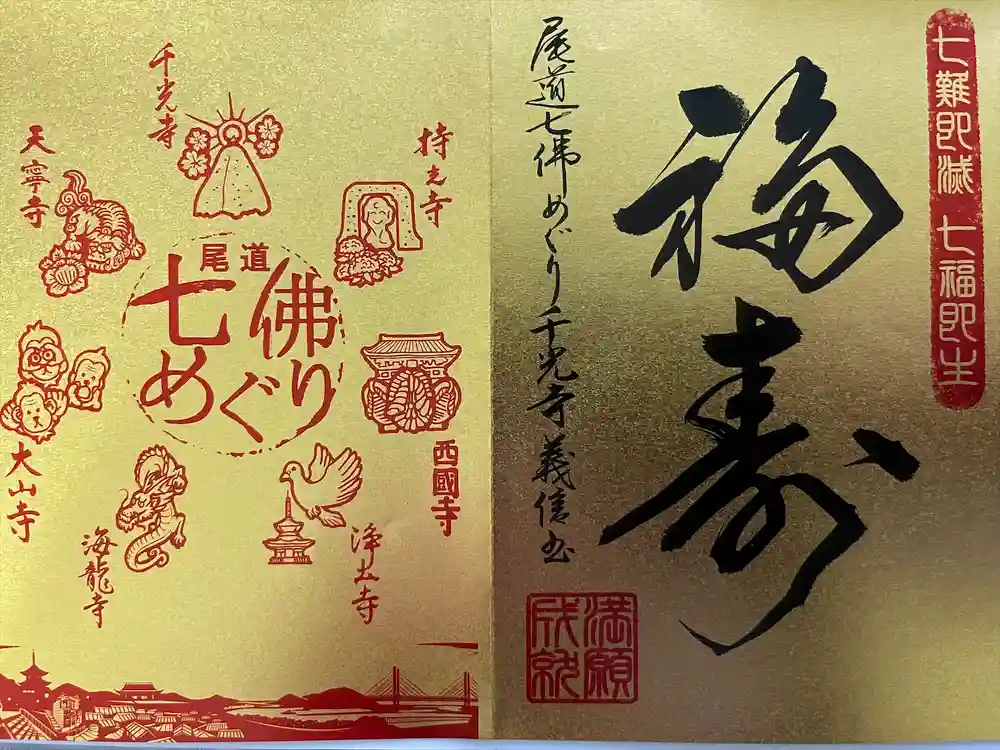 七難即滅 七福即生
福寿
尾道七佛めぐり千光寺義信書
満願
成就
尾道
七佛
めぐり
千光寺
持光寺
天寧寺
西國寺
大山寺
浄土寺
海龍寺